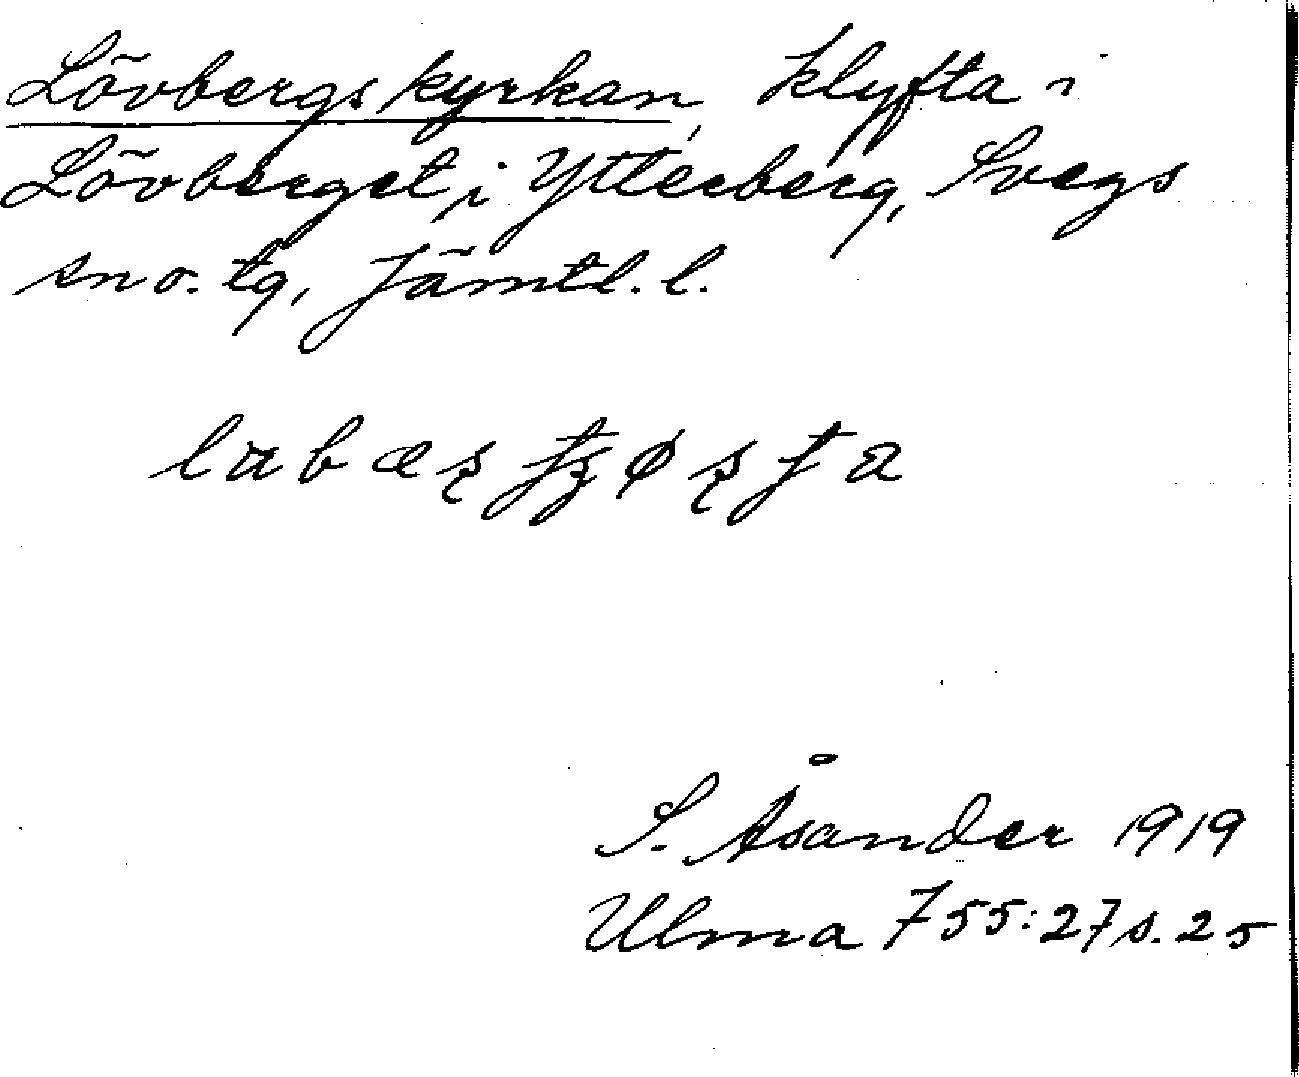 Lövbergskyrkan, klyfta i
Lövberget, i Ytterberg, Svegs
sno. tg, Jämtl. l.
S. Åsander 1919
Ulma 755:27 s. 25